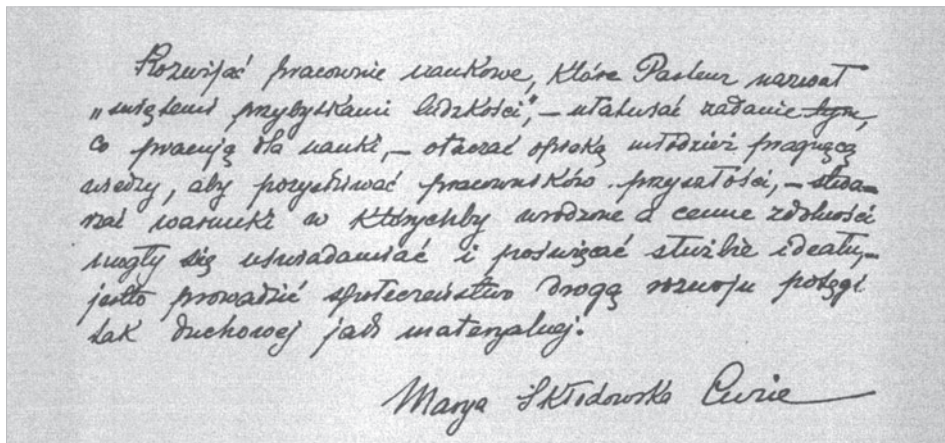 Rozwijać pracownie naukowe, które Pasteur nazwał
„świętemi przybytkami ludzkości”, – ułatwiać zadanie tym,
co pracują dla nauki, – otaczać opieką młodzież pragnącą
wiedzy, aby pozyskiwać pracowników przyszłości, – stwa-
rzać warunki w którychby wrodzone a cenne zdolności
mogły się uświadamiać i poświęcać służbie idealu, –
jestto prowadzić społeczeństwo drogą rozwoju potęgi
tak duchowej jak materyalnej.
Marya Skłodowska Curie